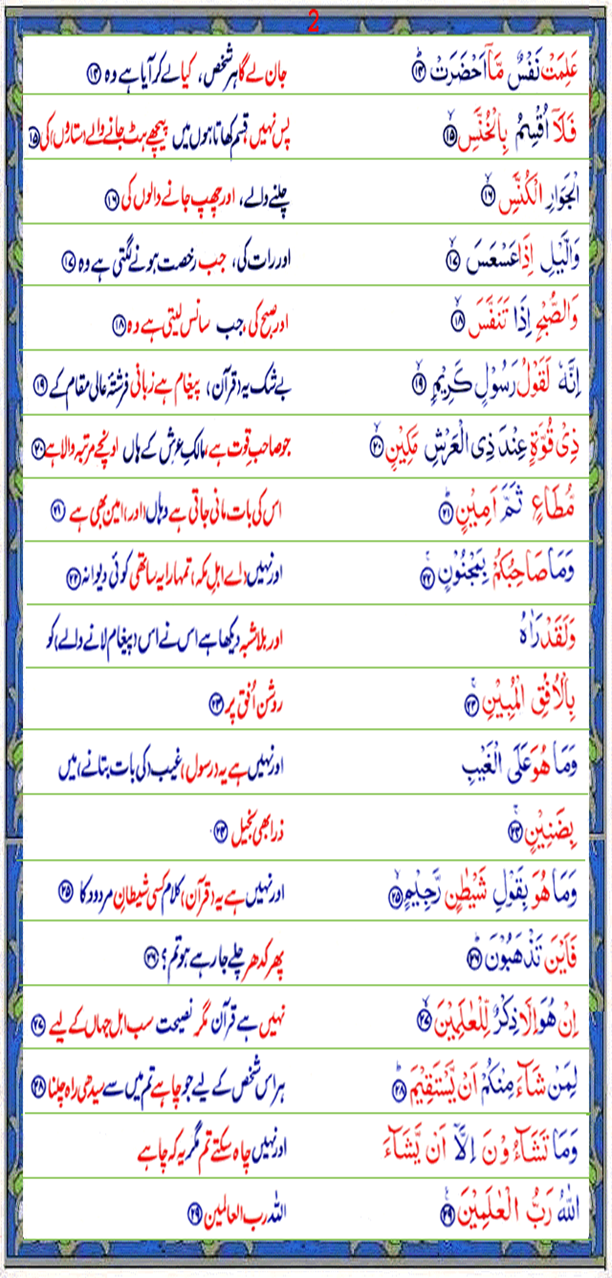 2
عَلِمَتْ نَفْسٌ مَّاۤ اَحْضَرَتْ ؕ﴿۱۴﴾ جان لے گا ہر شخص، کیا لے کر آیا ہے وہ ﴿۱۴﴾
فَلَاۤ اُقْسِمُ بِالْخُنَّسِ ۙ﴿۱۵﴾ پس نہیں قسم کھاتا ہوں میں پیچھے ہٹ جانے والے (ستاروں) کی ﴿۱۵﴾
الْجَوَارِ الْكُنَّسِ ۙ﴿۱۶﴾ چلنے والے، اور چھپ جانے والوں کی ﴿۱۶﴾
وَالَّيْلِ اِذَا عَسْعَسَ ۙ﴿۱۷﴾ اور رات کی، جب رخصت ہونے لگتی ہے وہ ﴿۱۷﴾
وَالصُّبْحِ اِذَا تَنَفَّسَ ۙ﴿۱۸﴾ اور صبح کی، جب سانس لیتی ہے وہ ﴿۱۸﴾
اِنَّهٗ لَقَوْلُ رَسُوْلٍ كَرِيْمٍ ۙ﴿۱۹﴾ بے شک یہ (قرآن)، پیغام ہے زبانی فرشتۂ عالی مقام کے ﴿۱۹﴾
ذِيْ قُوَّةٍ عِنْدَ ذِي الْعَرْشِ مَكِيْنٍ ۙ﴿۲۰﴾ جو صاحبِ قوت ہے، مالکِ عرش کے ہاں اونچے مرتبہ والا ہے ﴿۲۰﴾
مُّطَاعٍ ثَمَّ اَمِيْنٍ ؕ﴿۲۱﴾ اس کی بات مانی جاتی ہے وہاں (اور) امین بھی ہے ﴿۲۱﴾
وَمَا صَاحِبُكُمْ بِمَجْنُوْنٍ ۚ﴿۲۲﴾ اور نہیں (اے اہلِ مکہ) تمہارا یہ ساتھی کوئی دیوانہ ﴿۲۲﴾
وَلَقَدْ رَاٰهُ اور بلاشبہ دیکھا ہے اس نے اس (پیغام لانے والے) کو
بِالْاُفُقِ الْمُبِيْنِ ۚ﴿۲۳﴾ روشن اُفق پر ﴿۲۳﴾
وَمَا هُوَ عَلَى الْغَيْبِ اور نہیں ہے یہ (رسول) غیب (کی بات بتانے) میں
بِضَنِيْنٍ ۚ﴿۲۴﴾ ذرا بھی بخیل ﴿۲۴﴾
وَمَا هُوَ بِقَوْلِ شَيْطٰنٍ رَّجِيْمٍ ۙ﴿۲۵﴾ اور نہیں ہے یہ (قرآن) کلام کسی شیطانِ مردود کا ﴿۲۵﴾
فَاَيْنَ تَذْهَبُوْنَ ؕ﴿۲۶﴾ پھر کدھر چلے جا رہے ہو تم؟ ﴿۲۶﴾
اِنْ هُوَ اِلَّا ذِكْرٌ لِّلْعٰلَمِيْنَ ۙ﴿۲۷﴾ نہیں ہے قرآن مگر نصیحت سب اہلِ جہاں کے لیے ﴿۲۷﴾
لِمَنْ شَآءَ مِنْكُمْ اَنْ يَّسْتَقِيْمَ ؕ﴿۲۸﴾ ہر اس شخص کے لیے جو چاہے تم میں سے سیدھی راہ چلنا ﴿۲۸﴾
وَمَا تَشَآءُوْنَ اِلَّاۤ اَنْ يَّشَآءَ اور نہیں چاہ سکتے تم مگر یہ کہ چاہے
اللّٰهُ رَبُّ الْعٰلَمِيْنَ ﴿۲۹﴾ اللہ رب العالمین ﴿۲۹﴾